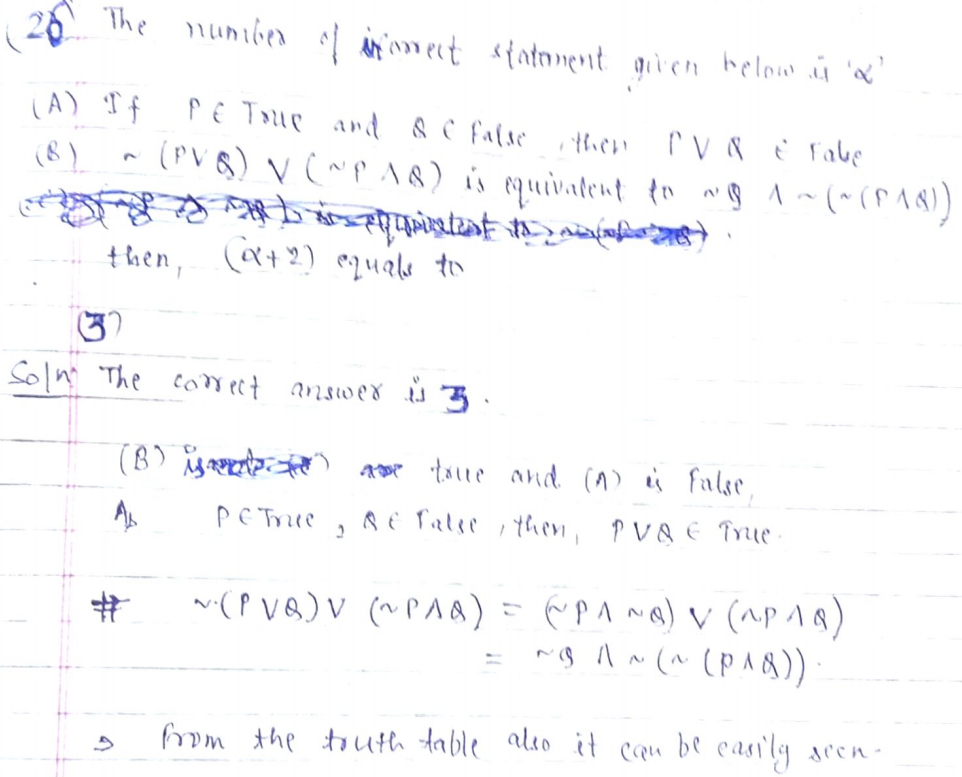 (26 The number of incorrect statement given below is 'α'
(A) If P ∈ True and Q ∈ False, then P ∨ Q ∈ False
(B) ~ (P ∨ Q) ∨ (~P ∧ Q) is equivalent to ~Q ∧ ~(~(P ∧ Q))
then, (α+2) equals to
(3)
Soln The correct answer is 3.
(B) true and (A) is False,
As P ∈ True, Q ∈ False, then, P ∨ Q ∈ True.
# ~(P ∨ Q) ∨ (~P ∧ Q) = (~P ∧ ~Q) ∨ (~P ∧ Q)
= ~Q ∧ ~(~ (P ∧ Q)).
⇒ From the truth table also it can be easily seen.